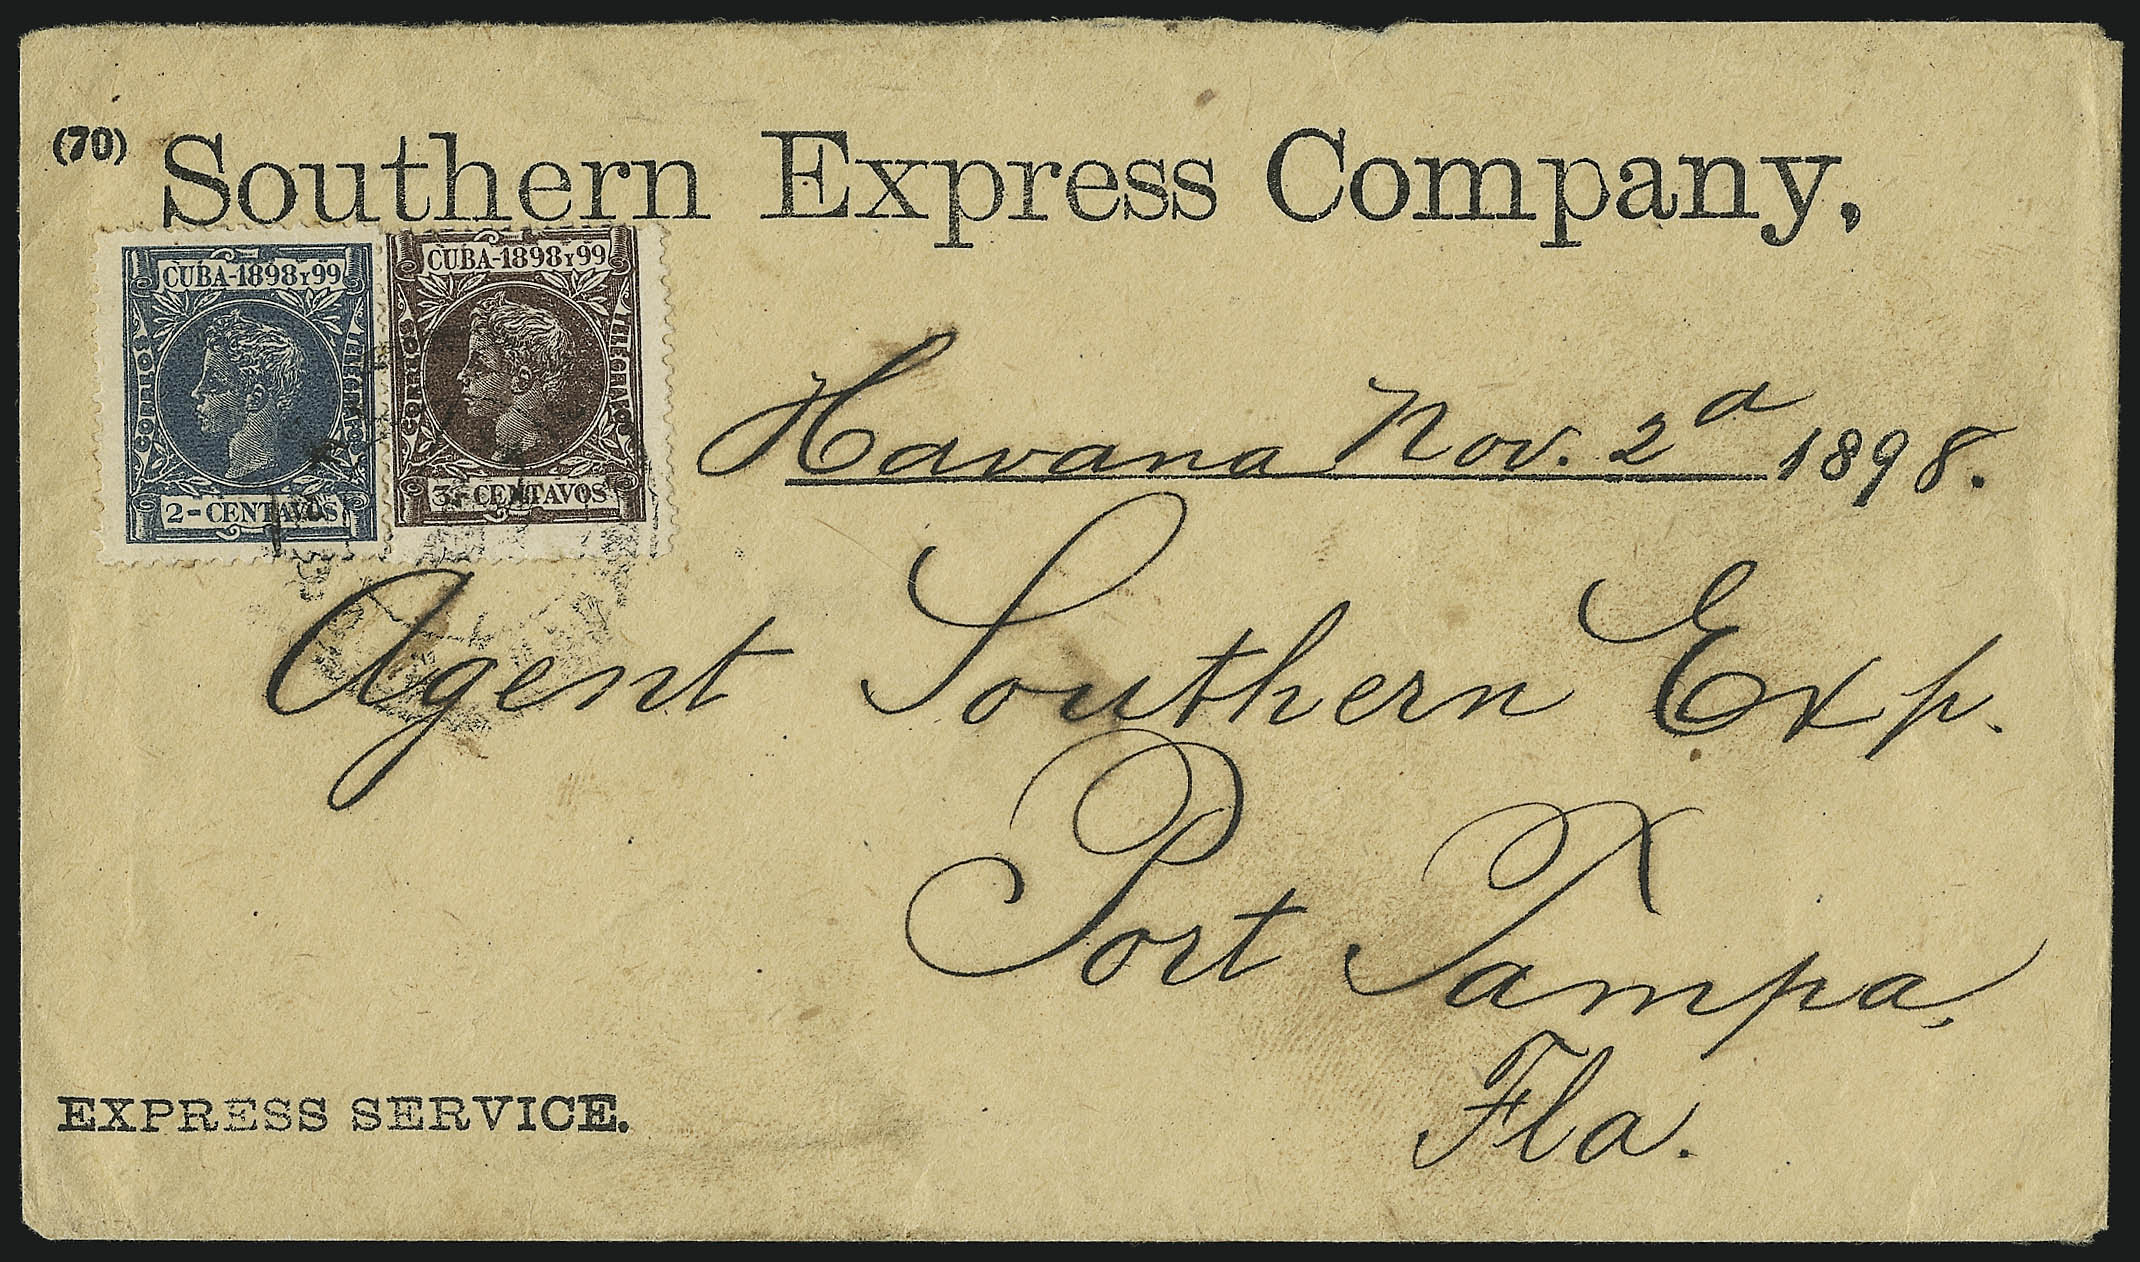 (70) Southern Express Company,
CUBA-1898Y99
CORREOS
TELEGRAFOS
2-CENTAVOS
CUBA-1898Y99
CORREOS
TELEGRAFOS
3-CENTAVOS
Havana Nov. 2d 1898.
Agent Southern Exp.
Port Tampa,
Fla.
EXPRESS SERVICE.